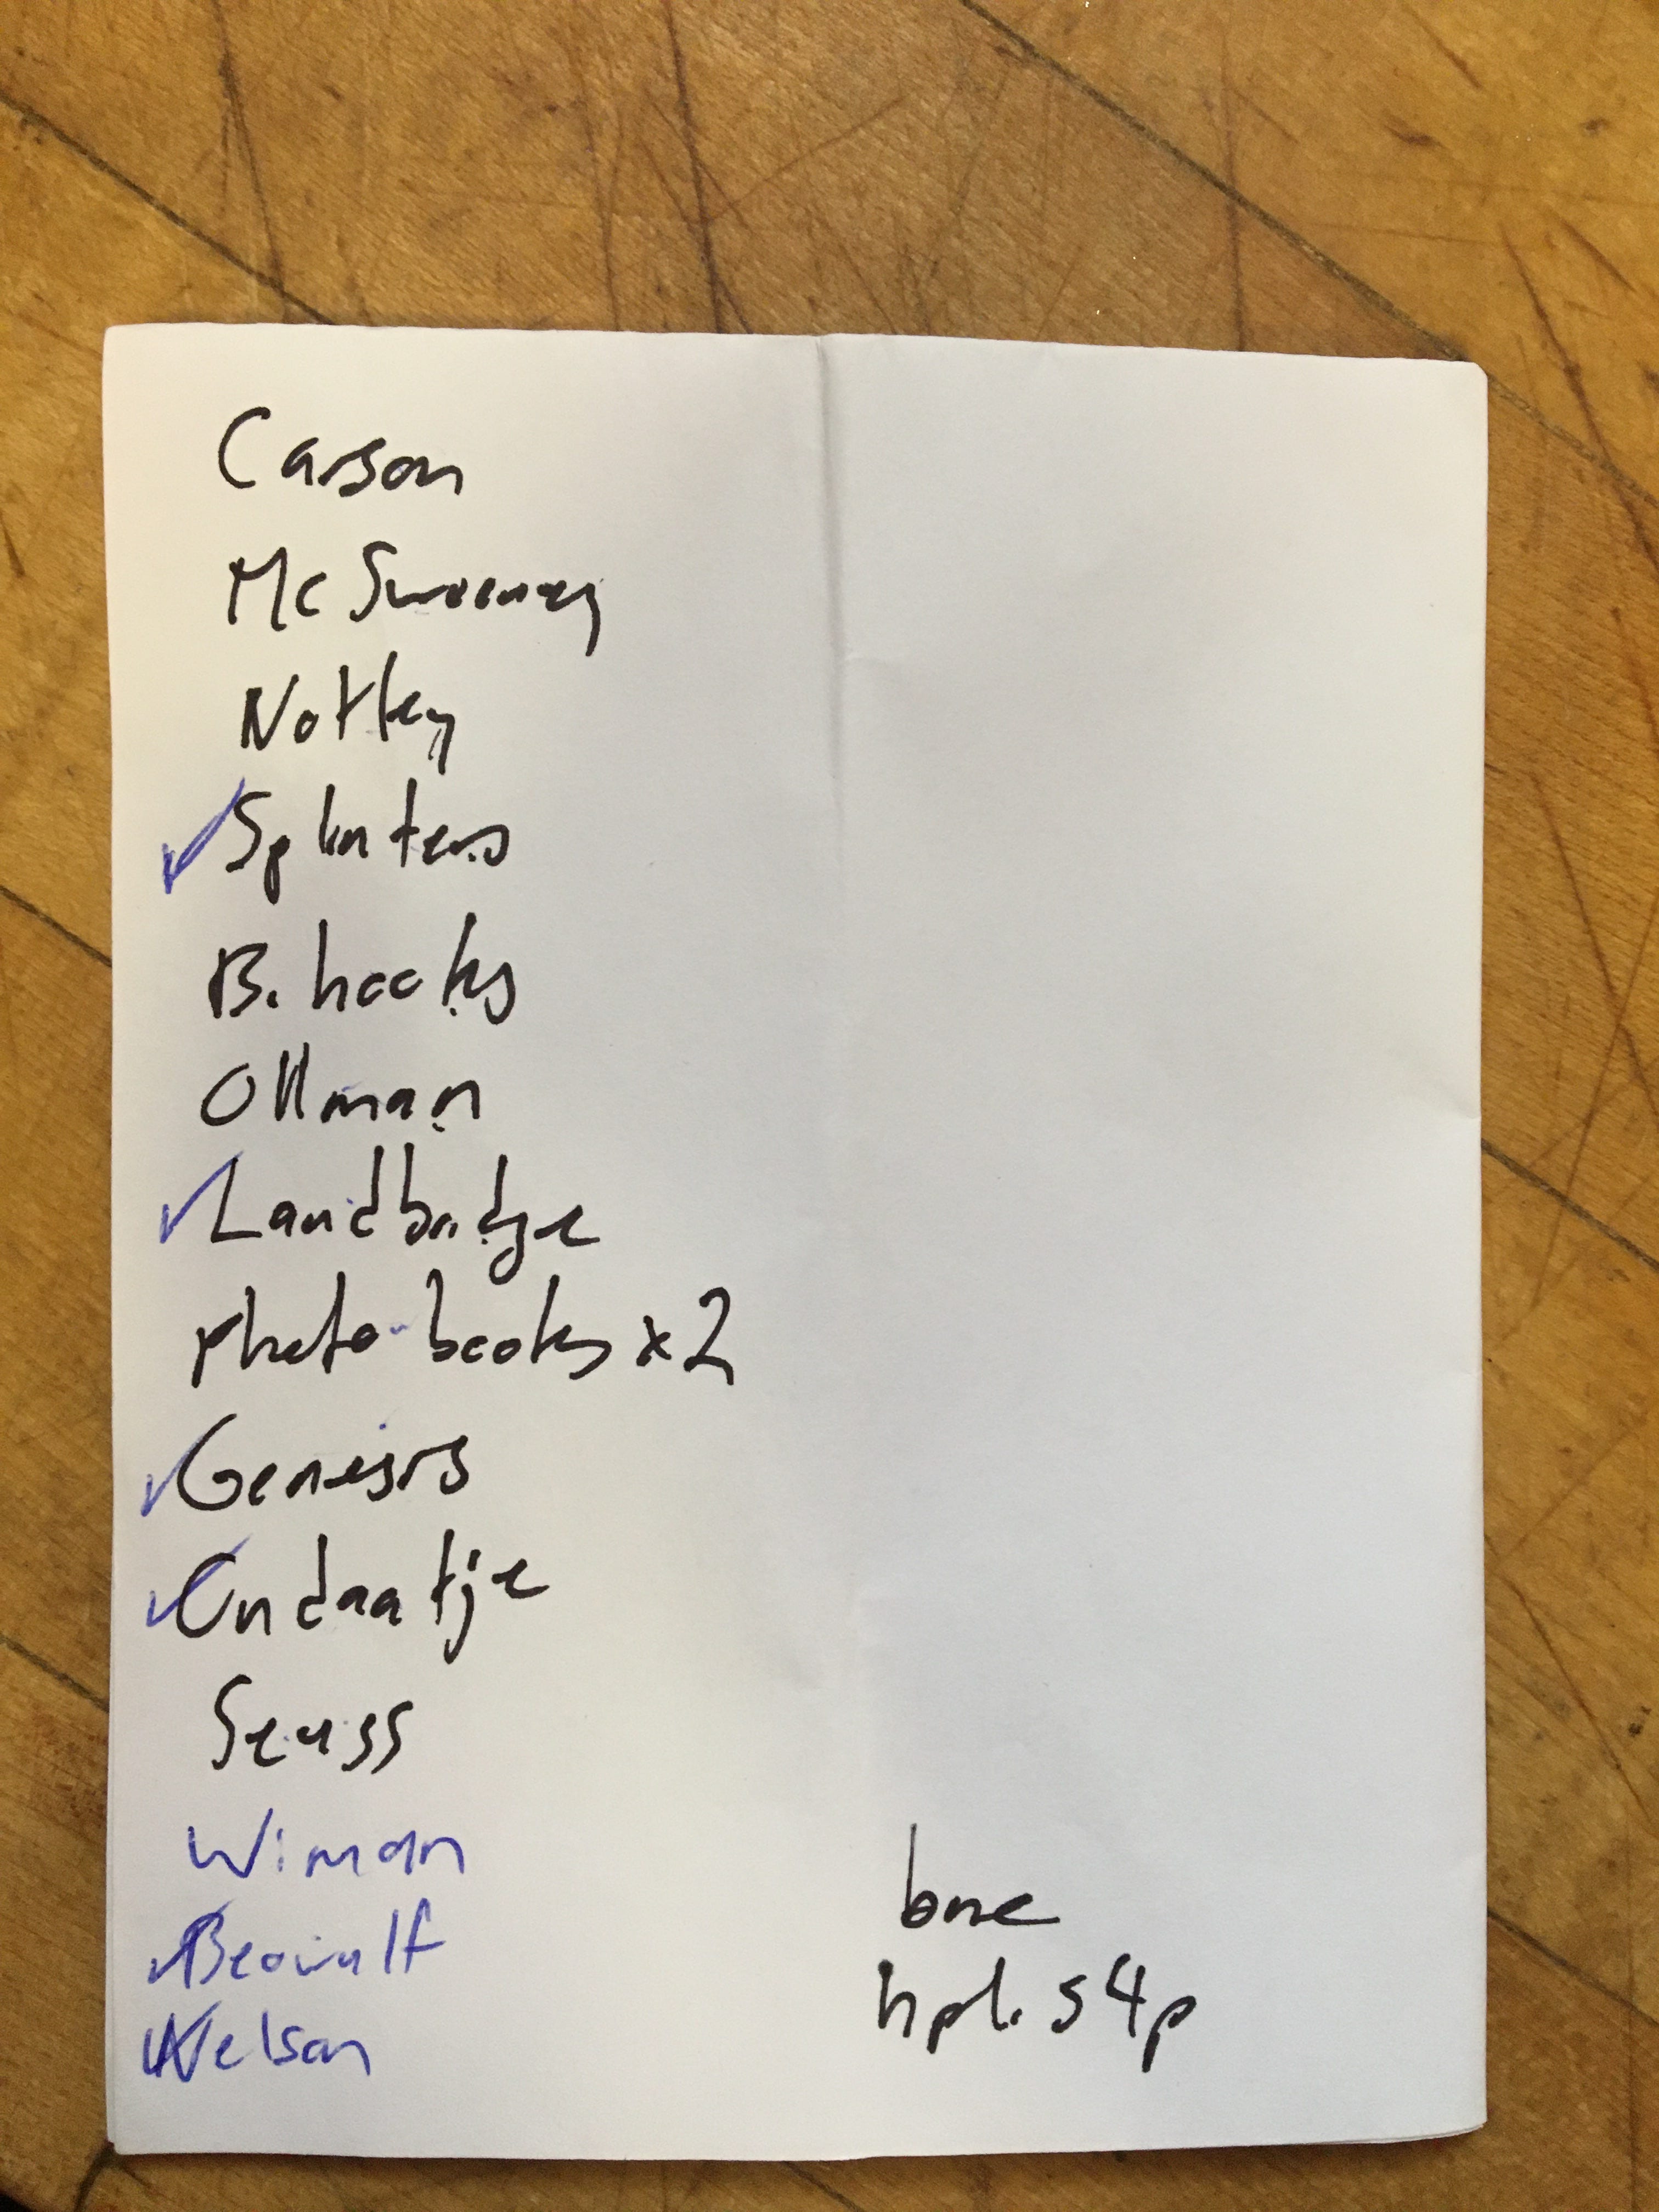 Carson
McSweeney
Notley
✓ Splinters
B. hooks
Ollman
✓ Landbridge
photo-books x2
✓ Genesis
✓ Ondaatje
Seuss
Wiman
✓ Beowulf
✓ Nelson